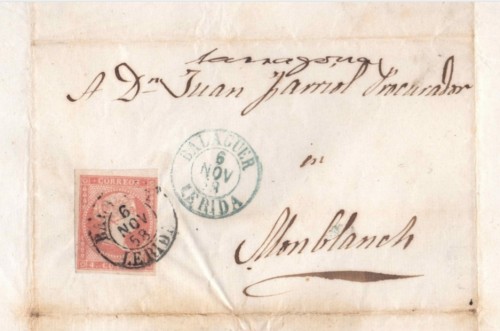 Tarragona
A Dn Juan Farriol Procurador
en
Monblanch
BALAGUER
6
NOV
LERIDA
CORREOS
6
NOV
58
LERIDA